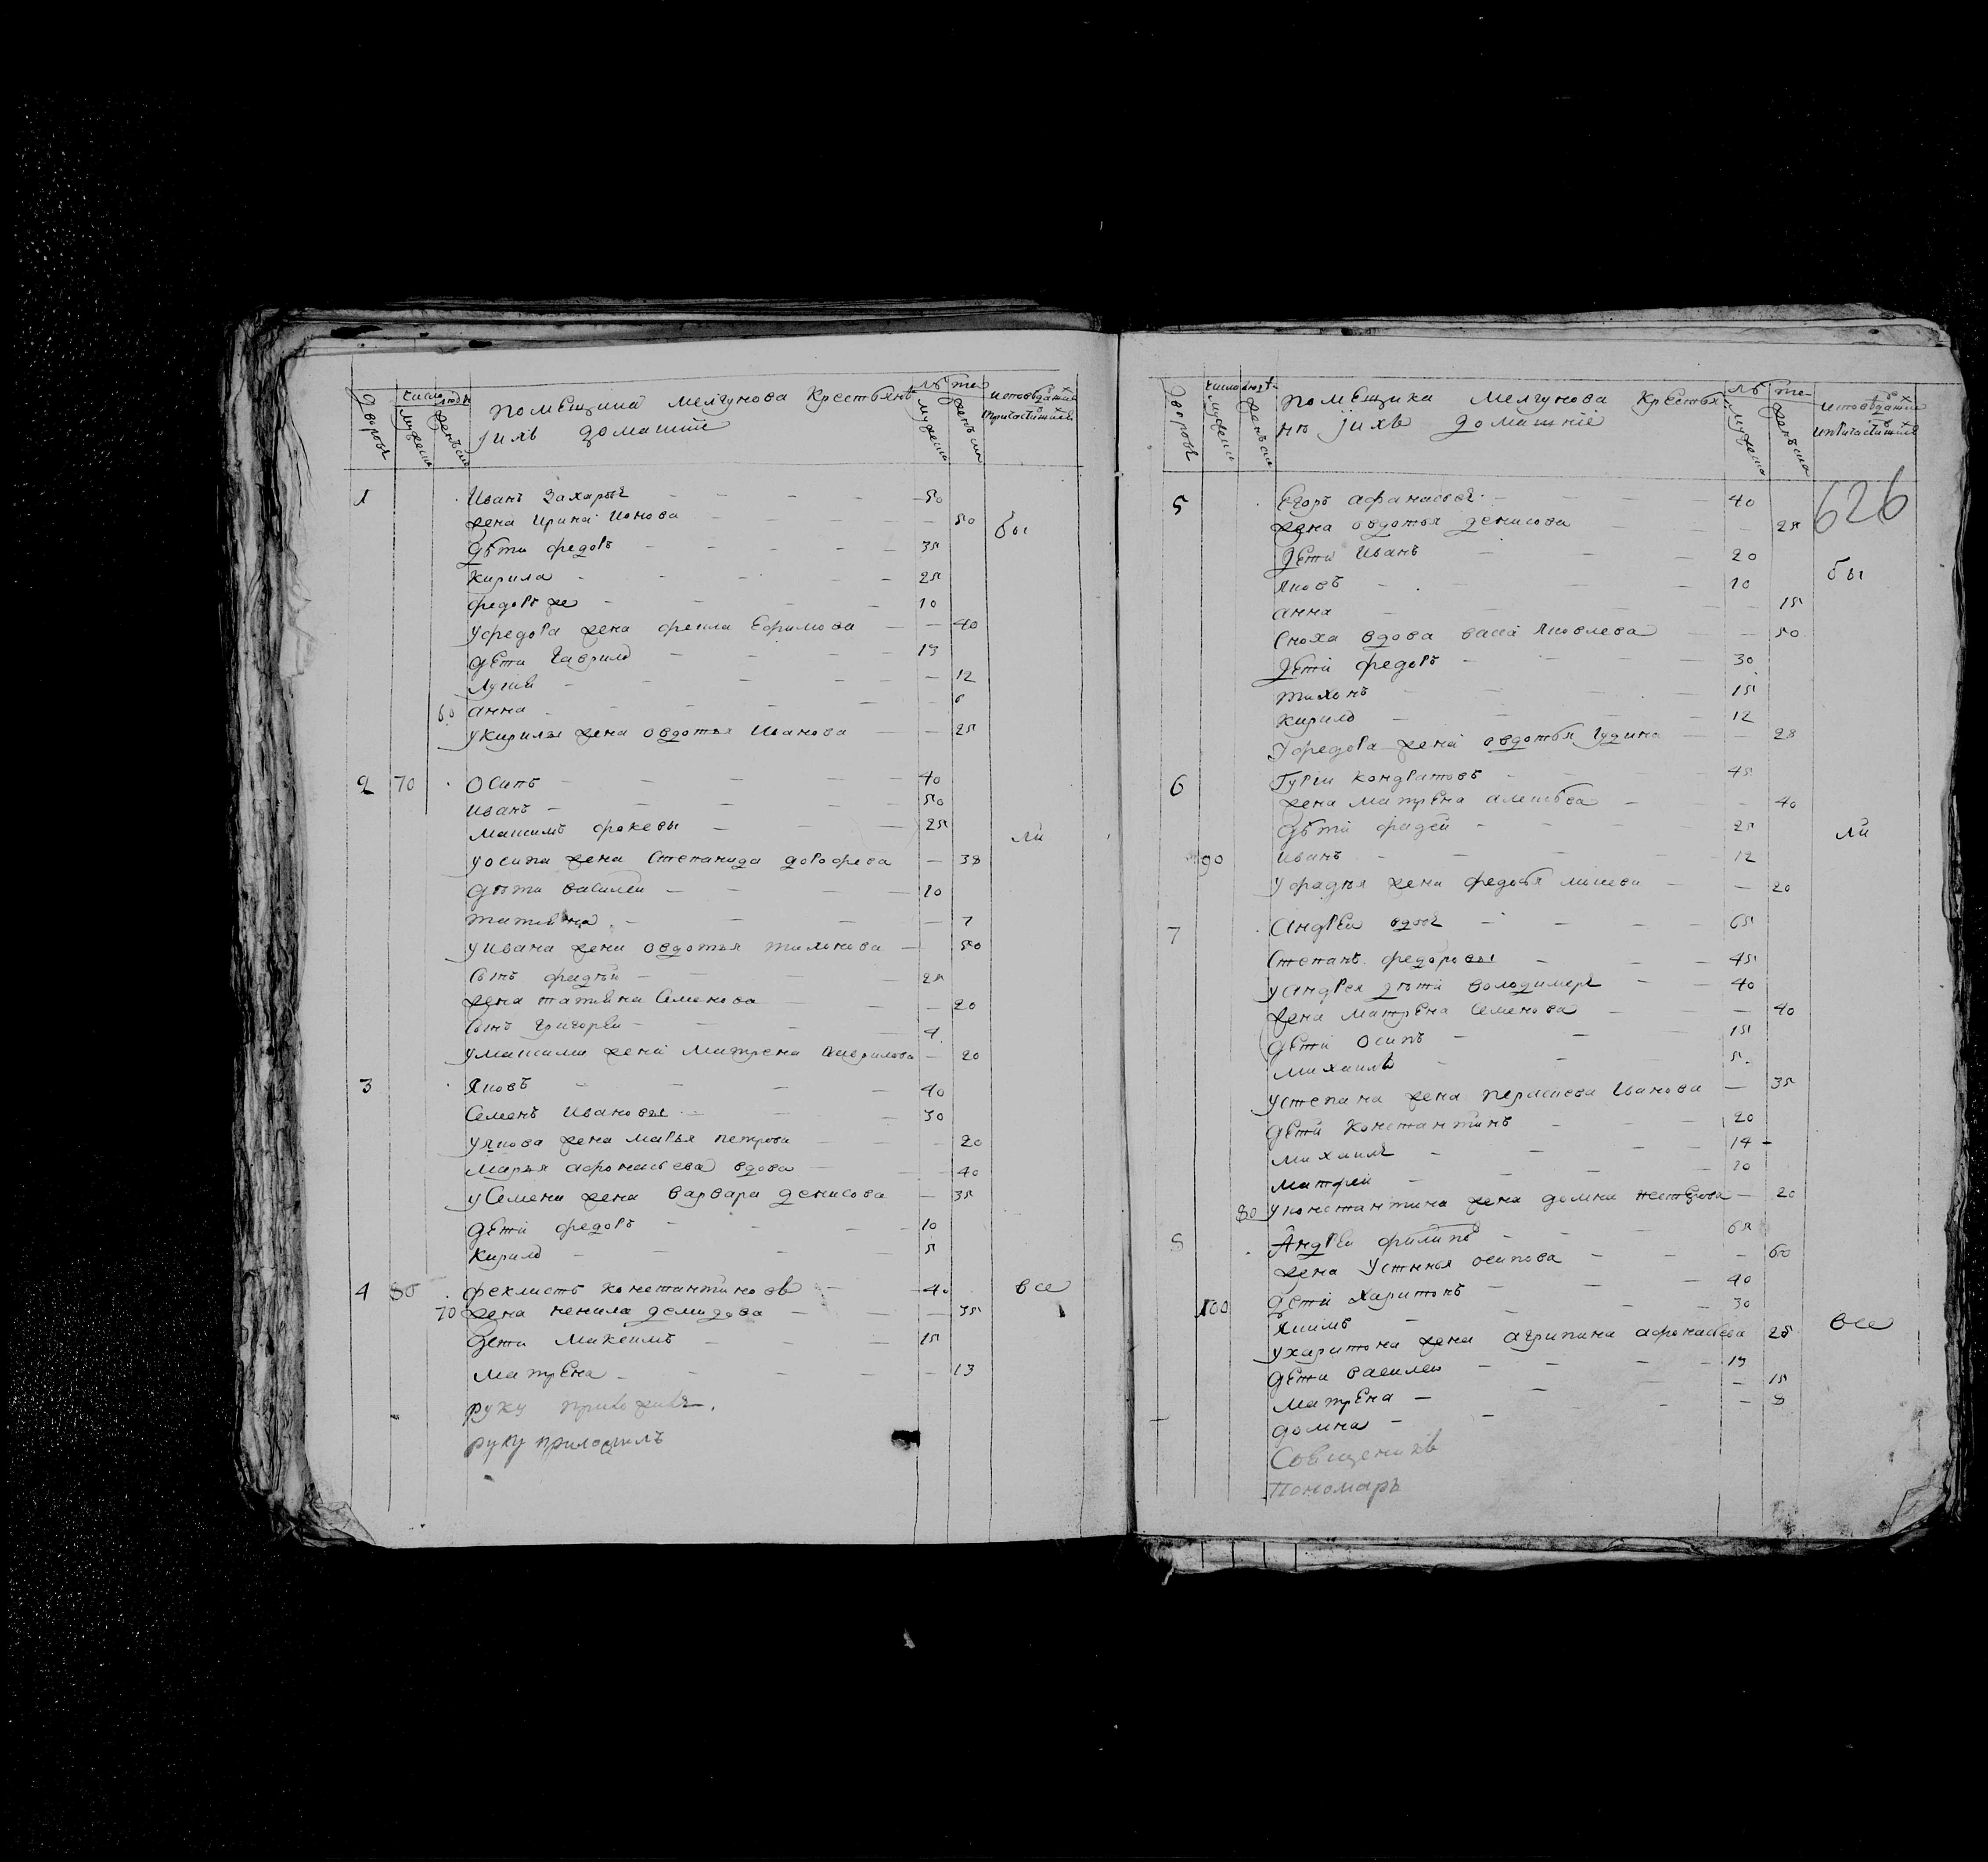 дворовъ число людѣ мужеска женъска помѣщика мелгунова крестьянъ лѣ те мужеска женъска
jихъ домашние
1 Иванъ Захаровъ — 50
жена Ирина Ионова — 50 бы
дѣти федоръ — 35
Кирила — 25
федоръ же — 10
у федора жена фекла Ефимова — 40
дети Гаврило — 13
12
60 анна — 6
у кирилы жена овдотья Иванова — 25
2 70 Осипъ — 40
иванъ — 50
максимъ фокевы — 25 ли
у осипа жена Степанида дорофева — 38
дѣти василеи — 10
татияна — 7
у ивана жена овдотья тихонова — 50
сынъ фадѣй — 25
жена татияна Семенова — 20
сынъ григореи — 4
у максима жена матрена Гаврилова — 20
3 Яковъ — 40
Семенъ Ивановы — 30
у якова жена марья петрова — 20
марья афонасьева вдова — 40
у Семена жена варвара денисова — 35
дѣти федоръ — 10
кирило — 5
4 80 феклистъ константиновъ — 40 все
70 жена ненила демидова — 35
дети максимъ — 15
матрена — 13
руку приложилъ
руку приложилъ
дворовъ число людѣ мужеска женъска помѣщика мелгунова крестья лѣ те мужеска женъска
нъ jихъ домашние
626
5 Егоръ афанасьевъ — 40
жена овдотья денисова — 25
дети Иванъ — 20 бы
яковъ — 10
анна — 15
сноха вдова васса яковлева — 50
дети федоръ — 30
тихонъ — 15
кирило — 12
у федора жена овдотья — 28
6 Гурѣи кондратовъ — 45
жена матрена алексѣева — 40
дѣти фадей — 25 ли
90 иванъ — 12
у фадѣя жена федосья — 20
7 Андрѣи вдовъ — 65
Степанъ федоровы — 45
у андрея дѣти володимеръ — 40
жена матрена семенова — 40
дѣти осипъ — 15
михаилъ — 5
у степана жена Иванова — 35
дѣти константинъ — 20
михаилъ — 14
матфеи — 10
80 у константина жена домна — 20
8 Андреи филипъ — 65
жена устинья осипова — 60
100 дѣти харитонъ — 40
якимъ — 30
у харитона жена агрипина афонасьева 25 все
дѣти василеи — 13
матрена — 15
домна — 8
Священикъ
Пономаръ